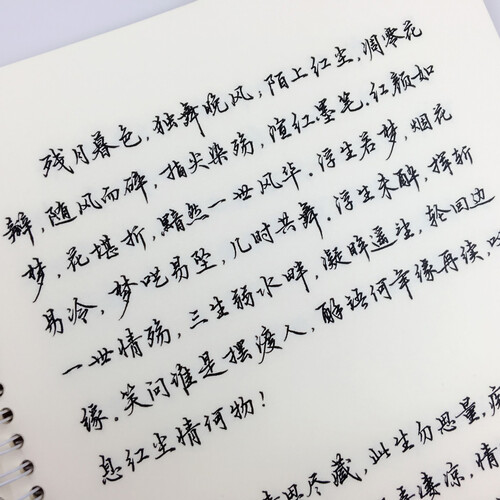 残月暮色，独舞晚风，陌上红尘，凋零花
瓣，随风而碎，指尖染殇，渲红墨笔。红颜如
梦，花堪折，黯然一世风华。浮生若梦，烟花
易冷，梦呓易坠，几时共舞。浮生未醉，挥斩
一世情殇，三生弱水畔，凝眸遥望，轮回边
缘。笑问谁是摆渡人，酥语何年缘再续，
息红尘情何物！
思尽藏，此生勿思量，
凄凉，情